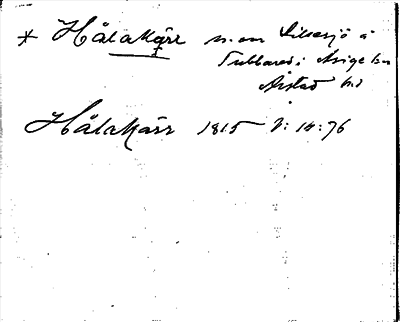 * Hålakärr n.om Lillesjö å
Tubbared i Asige sn
Årstad hd
Hålakärr 1815 V: 14: 76